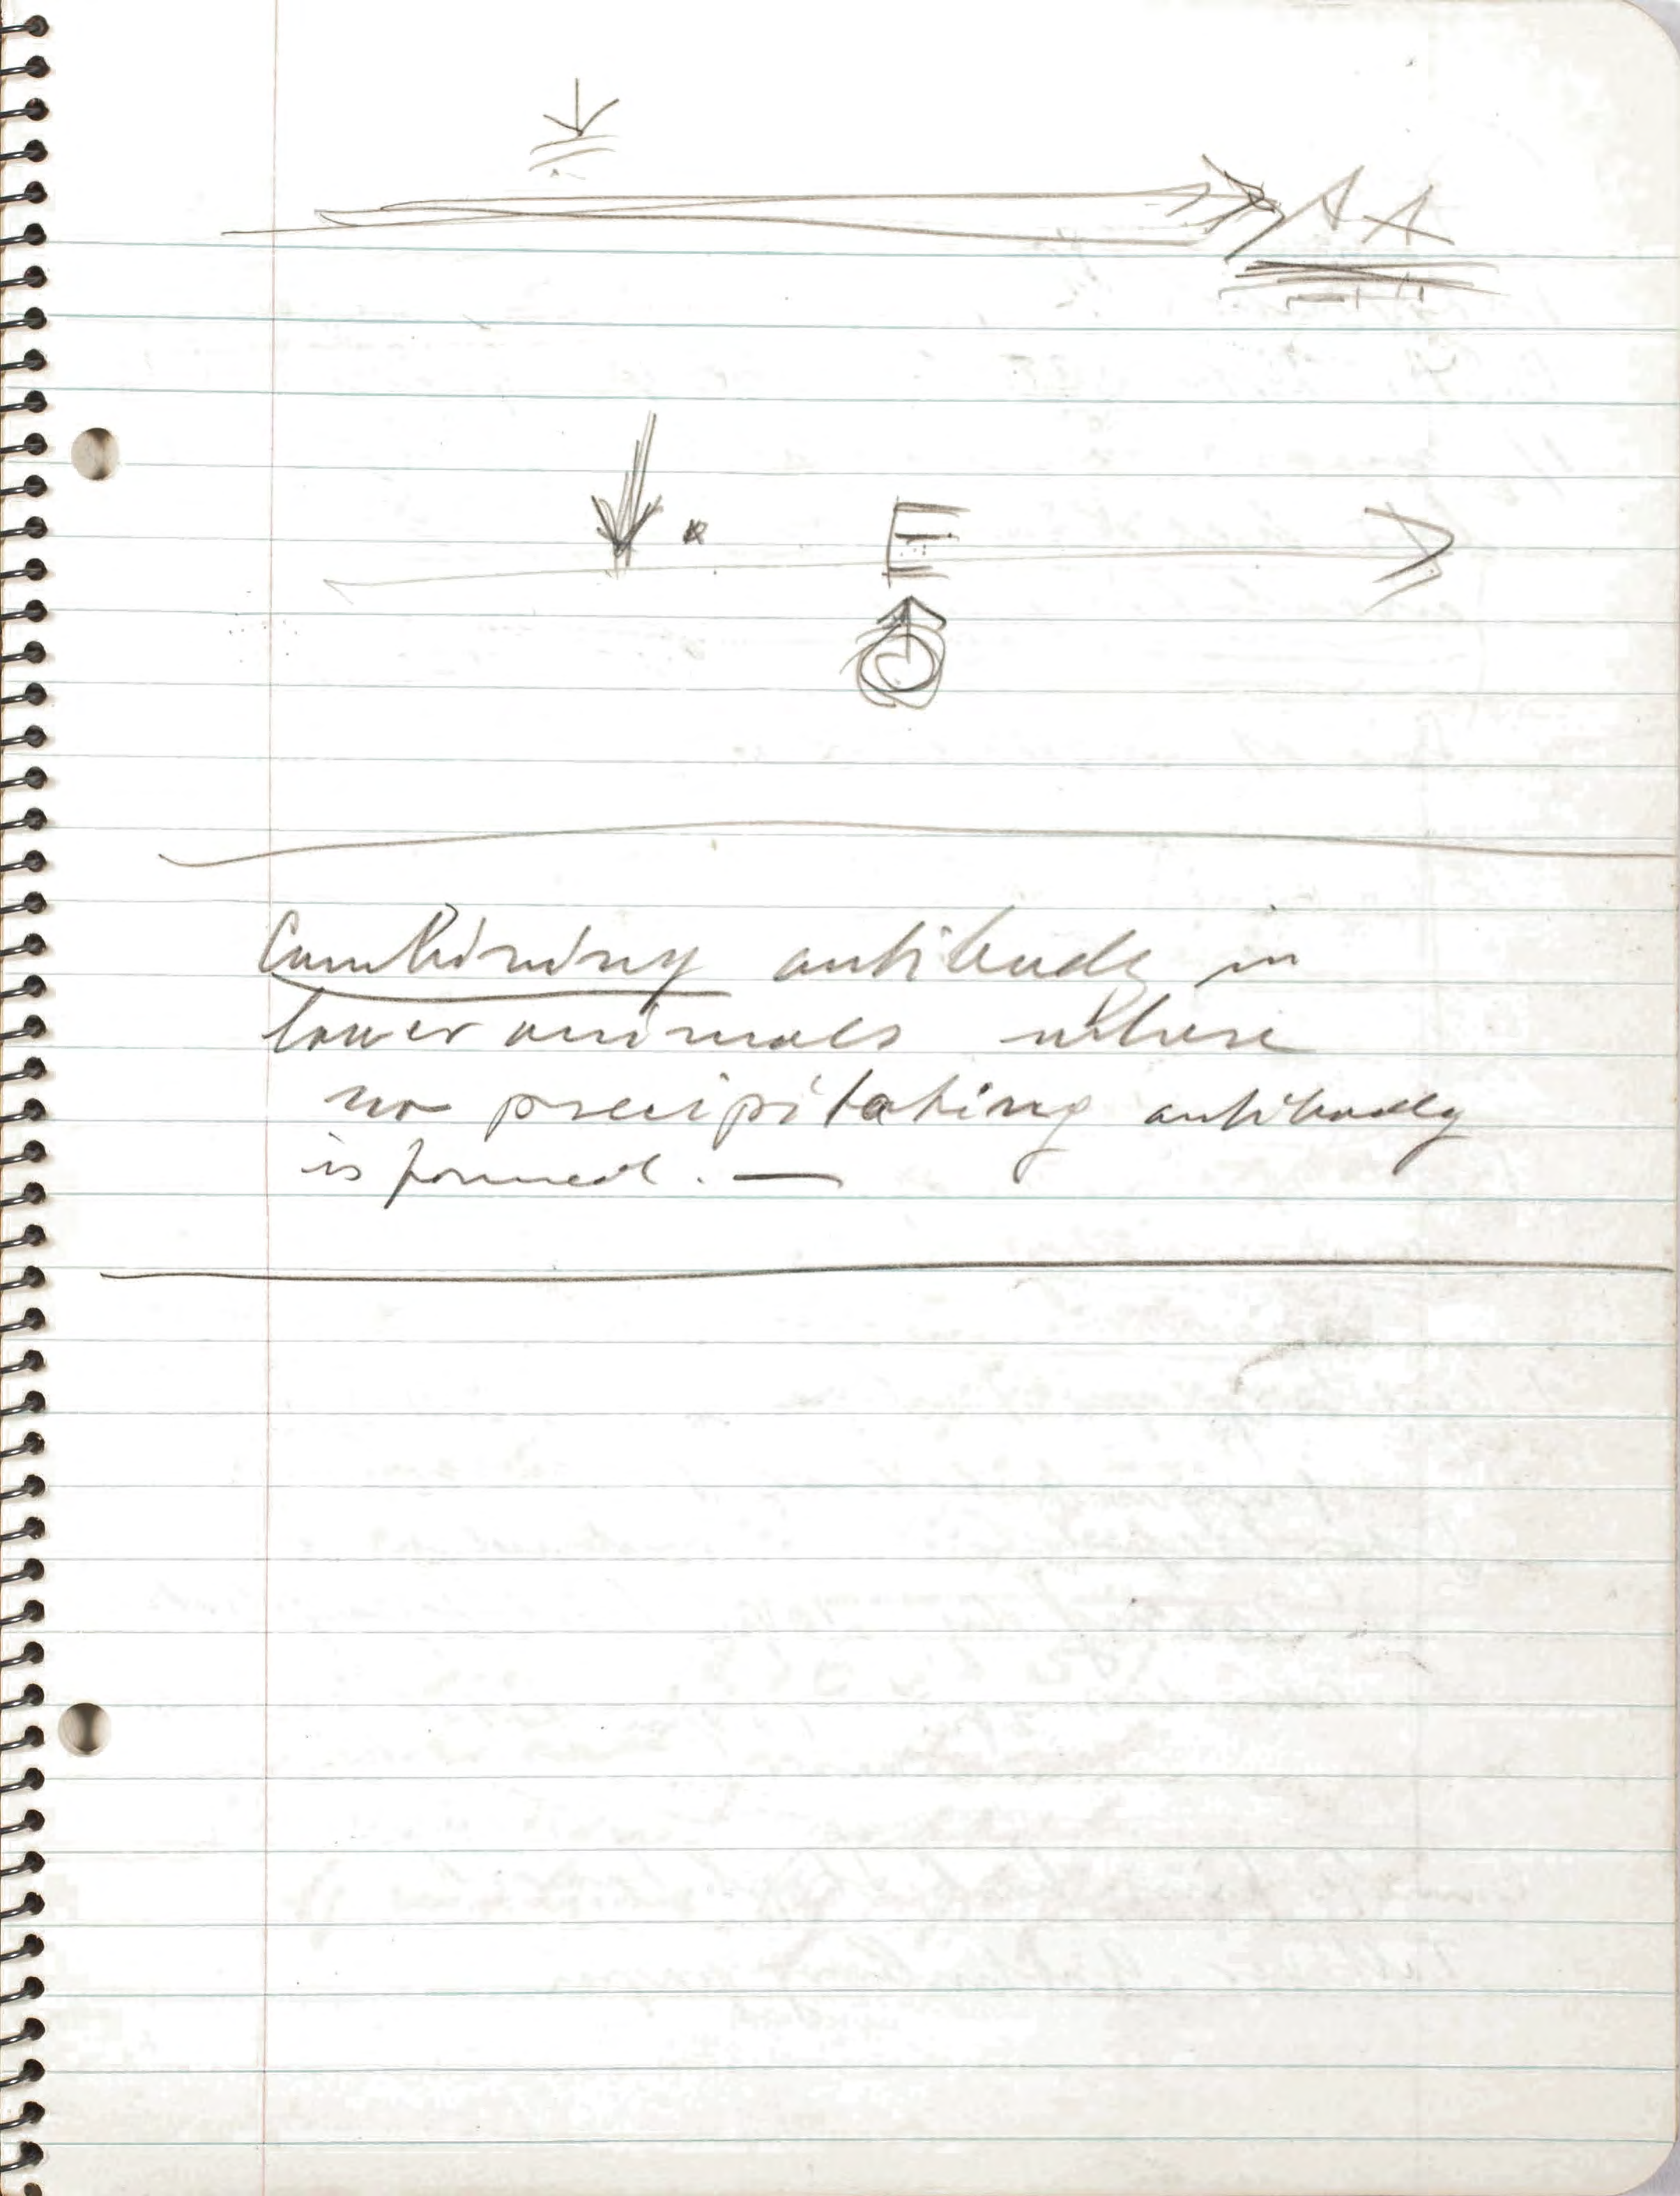 AA
E
Combining antibody in
lower animals where
no precipitating antibody
is formed. —